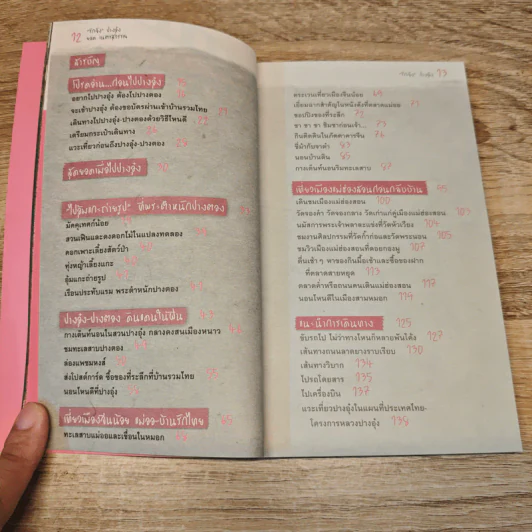 12
สารบัญ
โปรดอ่าน...ก่อนไปปางอุ๋ง 16
อยากไปปางอุ๋ง ต้องไปปางตอง
จะเข้าปางอุ๋ง ต้องขอบัตรผ่านเข้าบ้านรวมไทย 21
เดินทางไปปางอุ๋ง-ปางตองด้วยวิธีไหนดี 22
เตรียมกระเป๋าเดินทาง
แวะเที่ยวก่อนถึงปางอุ๋ง-ปางตอง 29
มัดคุเทศก์น้อย
สวนเฟินและดงดอกไม้ในแปลงทดลอง
คอกเพาะเลี้ยงสัตว์ป่า
ทุ่งหญ้าเลี้ยงแกะ
อุ้มแกะถ่ายรูป
เรือนประทับแรม พระตำหนักปางตอง
ปางอุ๋ง-ปางตอง ดินแดนในฝัน
กางเต็นท์นอนในสวนปางอุ๋ง กลางดงสนเมืองหนาว
ชมทะเลสาบปางตอง
ล่องแพชมหงส์
ส่งโปสต์การ์ด ซื้อของที่ระลึกที่บ้านรวมไทย
นอนไหนดีที่ปางอุ๋ง
ทะเลสาบแม่ออและเขื่อนในหมอก
13
ตระเวนเที่ยวเมืองจีนน้อย 69
เยี่ยมฉากสำคัญในหนังดังที่ตลาดแม่ออ 71
ชอปปิงของที่ระลึก 72
ชา ชา ชา ชิมชาก่อนเจ้า...
กินติดดินในภัตตาคารจีน 76
ขี่ม้ากับขาดำ 83
นอนบ้านดิน 85
กางเต็นท์นอนริมทะเลสาบ
เที่ยวเมืองแม่ฮ่องสอนก่อนกลับบ้าน 95
เดินชมเมืองแม่ฮ่องสอน 100
วัดจองคำ วัดจองกลาง วัดเก่าแก่คู่เมืองแม่ฮ่องสอน
นมัสการพระเจ้าพลาละแข่งที่วัดหัวเวียง 104
ชมงานศิลปกรรมที่วัดก้ำก่อและวัดพระนอน 105
ชมวิวเมืองแม่ฮ่องสอนที่ดอยกองมู 107
ตื่นเช้า ๆ หาของกินมื้อเช้าและซื้อของฝาก
ที่ตลาดสายหยุด 113
กลางค่ำหรือถนนคนเดินแม่ฮ่องสอน 117
นอนไหนดีในเมืองสามหมอก 119
แนะนำการเดินทาง 125
ขับรถไป ไม่ว่าทางไหนก็หลายพันโค้ง 127
เส้นทางถนนลาดยางราบเรียบ 130
เส้นทางวิบาก 134
ไปรถโดยสาร 135
ไปเครื่องบิน 137
แวะเที่ยวปางอุ๋งในแผนที่ประเทศไทย-
โครงการหลวงปางอุ๋ง 138